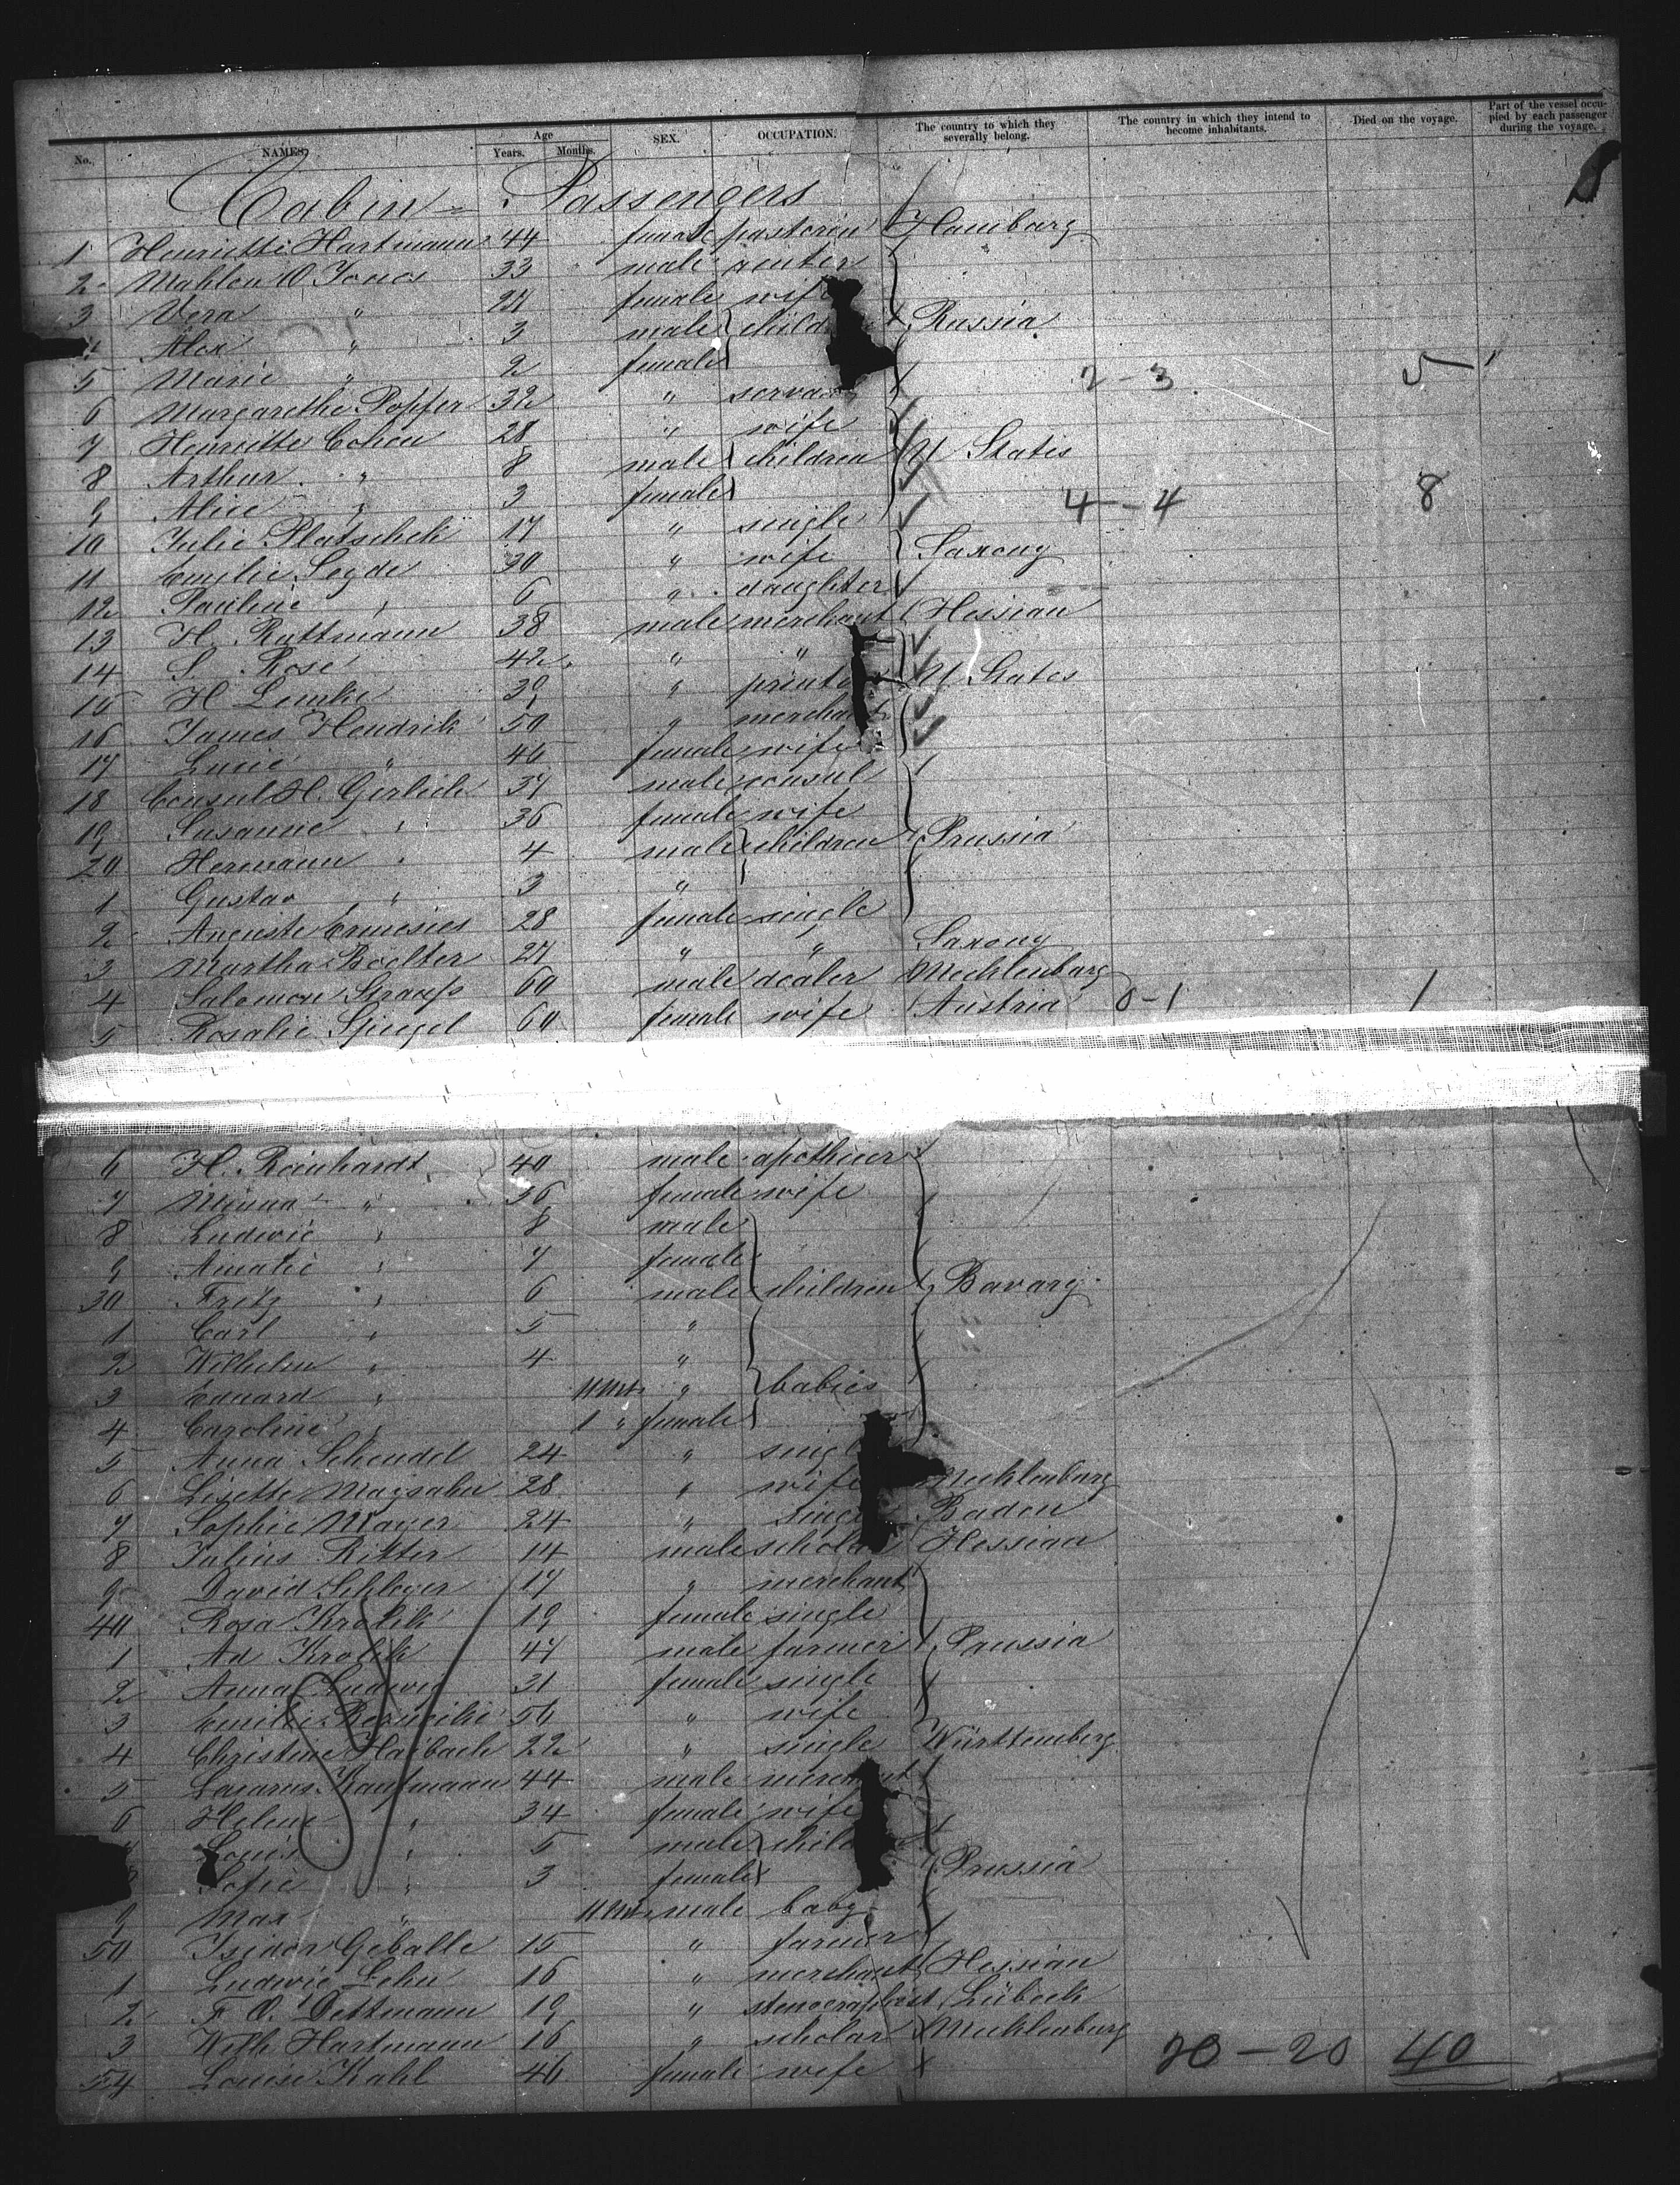 No. NAMES. Age Years. Months. SEX. OCCUPATION. The country to which they severally belong. The country in which they intend to become inhabitants. Died on the voyage. Part of the vessel occupied by each passenger during the voyage.
Cabin = Passengers
1 Henriette Hartmann 44 female pastorin Hamburg
2 Mahlon O Jones 33 male rentier
3 Vera " 27 female wife
4 Alex " 3 male child Russia
5 Marie " 2 female
6 Margarethe Popfer 32 " servant 2-3 5
7 Henriette Cohen 28 " wife
8 Arthur " 8 male children U States
9 Alice " 3 female
10 Julie Platschek 17 " single 4-4 8
11 Emilie Seyde 30 " wife Saxony
12 Pauline " 6 " daughter
13 H. Ruttmann 38 male merchant Hessian
14 S. Rose 42 " "
15 H Lemke 39 " printer U States
16 James Hendrik 50 " merchant
17 Lucie " 46 female wife
18 Consul H. Gerlich 37 male consul
19 Susanne " 36 female wife
20 Hermann " 4 male children Prussia
1 Gustav " 3 "
2 Auguste 28 female single
3 Martha Boelter 27 " " Saxony
4 Salomon Strauss 60 male dealer Mecklenburg
5 Rosalie Spiegel 60 female wife Austria 0-1 1
6 H. Reinhardt 40 male apothecer
7 Minna " 36 female wife
8 Ludwig " 8 male
9 Amalie " 7 female
30 Fritz " 6 male children Bavary
1 Carl " 5 "
2 Wilhelm " 4 "
3 Eduard " 11 Mt. " babies
4 Caroline " 1 " female
5 Anna Schendel 24 " single
6 Lisette Maysahn 28 " wife Mecklenburg
7 Sophie Mayer 24 " single Baden
8 Julius Ritter 14 male scholar Hessian
9 David Schloger 17 " merchant
40 Rosa Krolik 19 female single
1 Ad Krolik 47 male farmer Prussia
2 Anna Ludwig 31 female single
3 Emilie 56 " wife
4 Christine Haibach 22 " single Württemberg
5 Lazarus Kaufmann 44 male merchant
6 Helene " 34 female wife
Louis " 5 male child
Sofie " 3 female Prussia
9 Max " 11 Mt. male baby
50 Isidor Geballe 15 " farmer
1 Ludwig Lehn 16 " merchant Hessian
2 F. O. Dettmann 19 " stenographist Lübeck
3 Wilh Hartmann 16 " scholar Mecklenburg
54 Louise Kahl 46 female wife 20-20 40